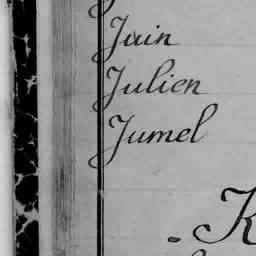 Jain
Julien
Jumel
- K